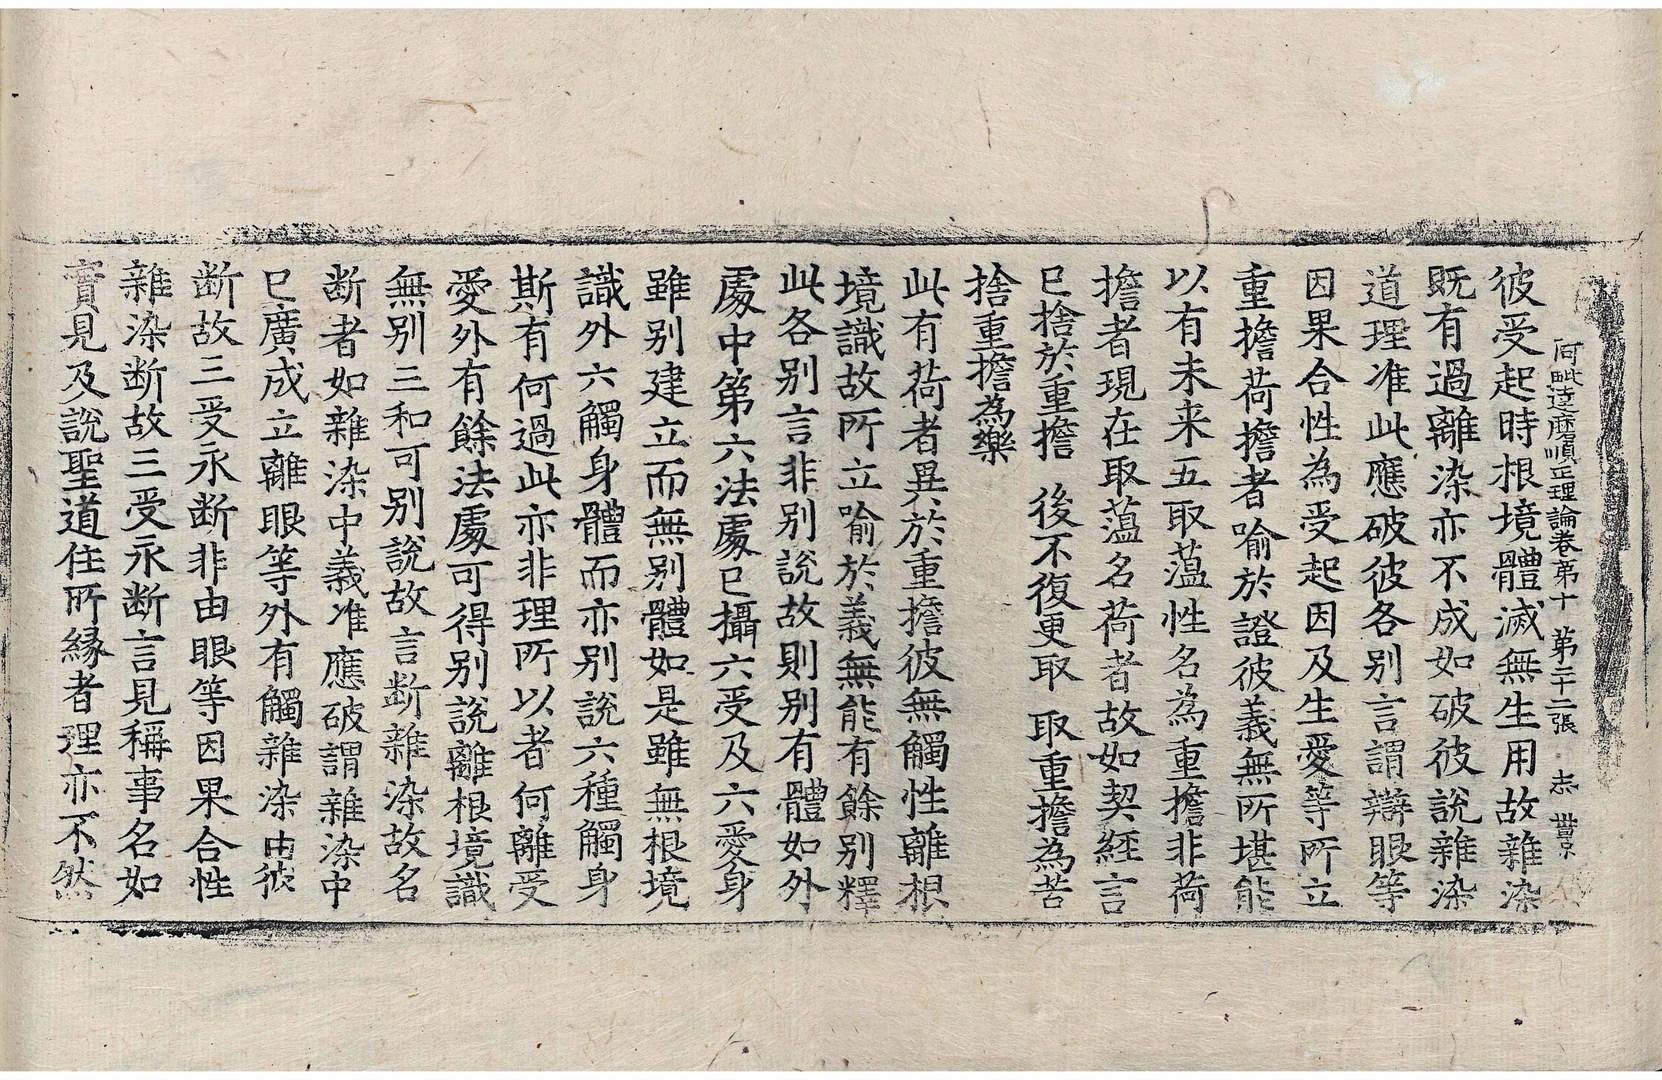 阿毗達磨順正理論卷第十　第二十二張　志
彼受起時根境體滅無生用故雜染
既有過離染亦不成如破彼說雜染
道理准此應破彼各別言謂辯眼等
因果合性為受起因及生愛等所立
重擔荷擔者喻於證彼義無所堪能
以有未来五取蕰性名為重擔非荷
擔者現在取蕰名荷者故如契經言
已捨於重擔　後不復更取　取重擔為苦
捨重擔為樂
此有荷者異於重擔彼無觸性離根
境識故所立喻於義無能有餘別釋
此各別言非別說故則別有體如外
處中第六法處已攝六受及六愛身
雖別建立而無別體如是雖無根境
識外六觸身體而亦別說六種觸身
斯有何過此亦非理所以者何離受
愛外有餘法處可得別說離根境識
無別三和可別說故言断雜染故名
断者如雜染中義准應破謂雜染中
已廣成立離眼等外有觸雜染由彼
断故三受永断非由眼等因果合性
雜染断故三受永断言見稱事名如
實見及說聖道住所緣者理亦不然